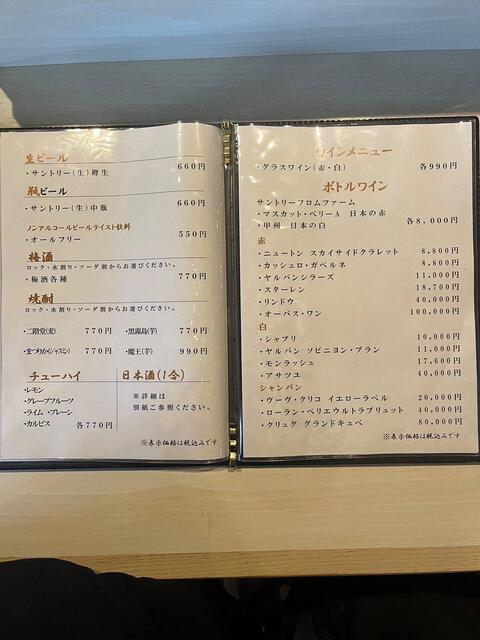 生ビール
・サントリー(生)樽生 660円
瓶ビール
・サントリー(生)中瓶 660円
ノンアルコールビールテイスト飲料
・オールフリー 550円
梅酒
ロック・水割り・ソーダ割からお選びください。
・梅酒各種 770円
焼酎
ロック・水割り・ソーダ割からお選びください。
・二階堂(麦) 770円 ・黒霧島(芋) 770円
・まつりか(ジャスミン) 770円 ・魔王(芋) 990円
チューハイ
・レモン
・グレープフルーツ
・ライム ・プレーン
・カルピス 各770円
日本酒(1合)
※詳細は
別紙ご参照ください。
※表示価格は税込みです
ワインメニュー
・グラスワイン(赤・白) 各990円
ボトルワイン
サントリーフロムファーム
・マスカット・ベリーA 日本の赤
・甲州 日本の白 各8,000円
赤
・ニュートン スカイサイドクラレット 8,800円
・カッシェロ・ガベルネ 8,800円
・ヤルバンシラーズ 11,000円
・スターレン 18,700円
・リンドウ 40,000円
・オーパス・ワン 100,000円
白
・シャブリ 10,000円
・ヤルバン ソビニヨン・ブラン 11,000円
・モンラッシェ 17,600円
・アサツユ 40,000円
シャンパン
・ヴーヴ・クリコ イエローラベル 20,000円
・ローラン・ペリエウルトラブリュット 40,000円
・クリュグ グランドキュベ 80,000円
※表示価格は税込みです